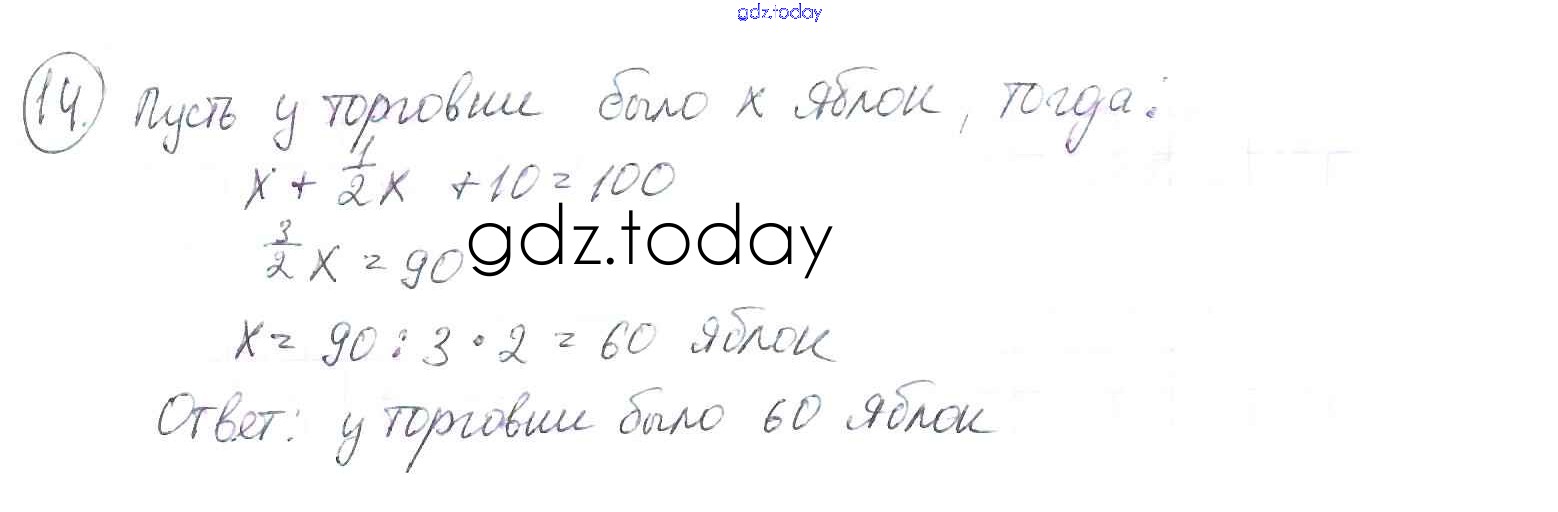 gdz.today
14. Пусть у торговки было x яблок, тогда:
x + 1/2 x + 10 = 100
3/2 x = 90
gdz.today
x = 90 : 3 · 2 = 60 яблок
Ответ: у торговки было 60 яблок